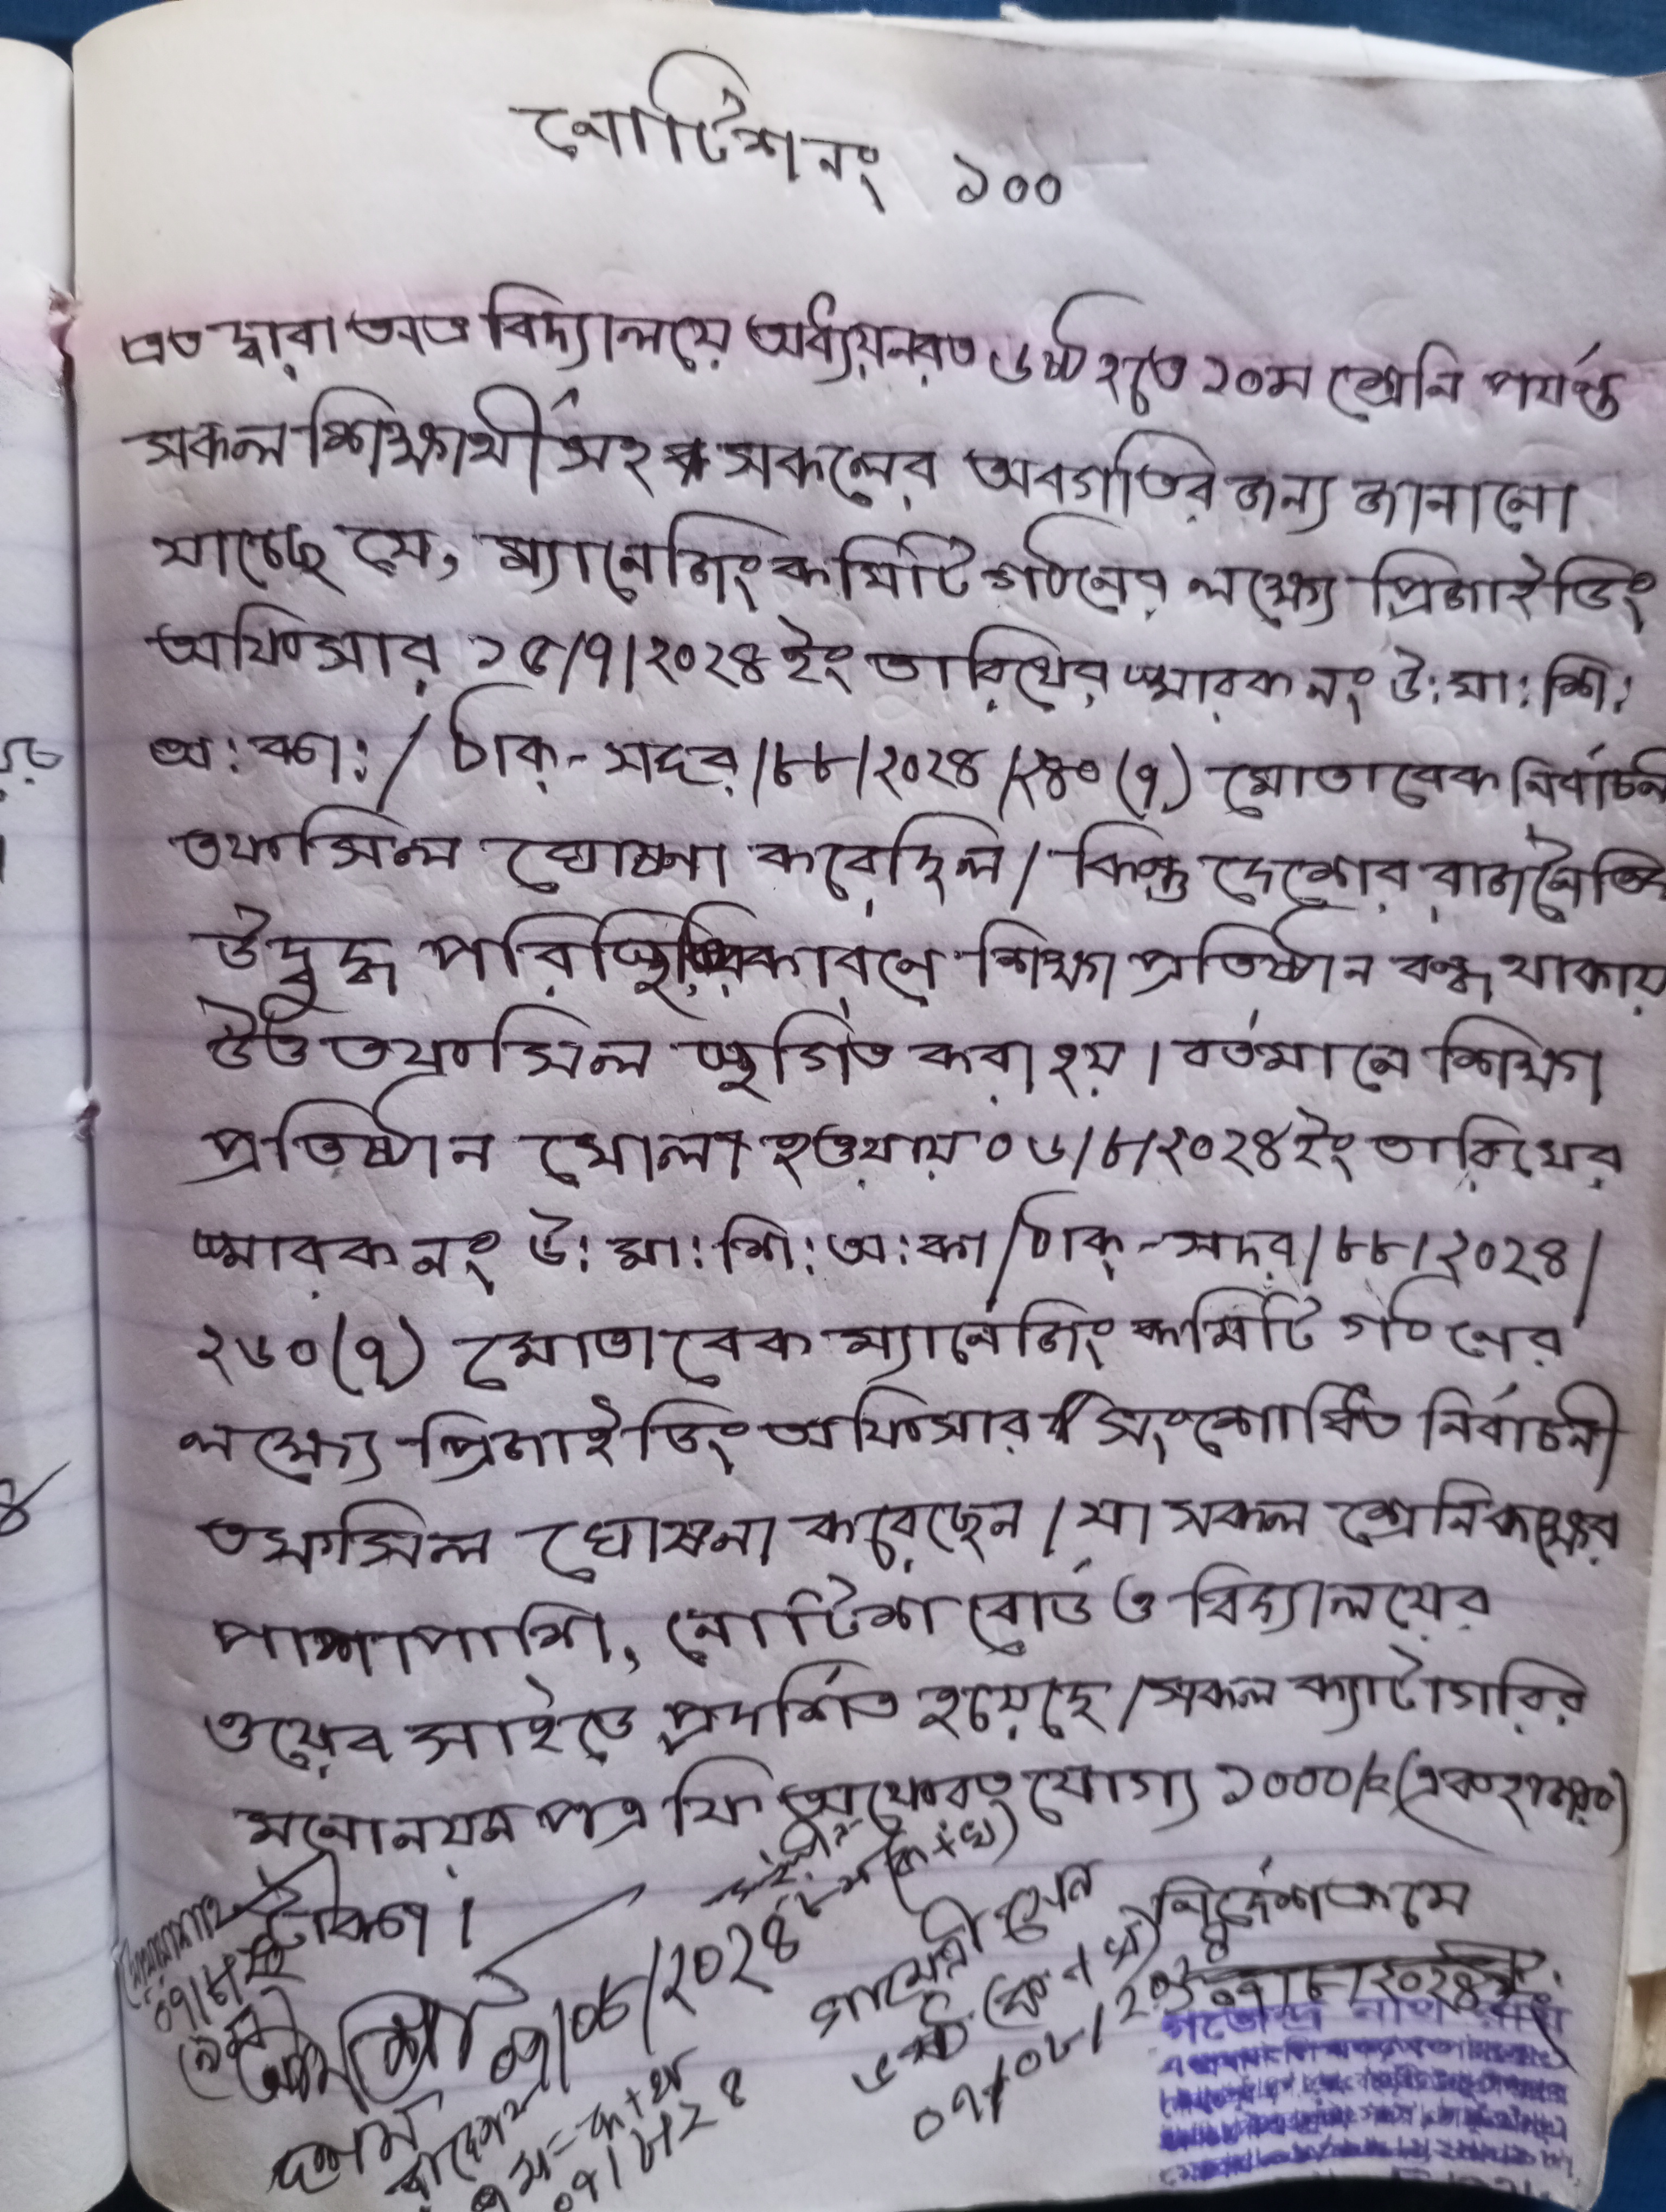 নোটিশ নং ১০০
এত দ্বারা অত্র বিদ্যালয়ে অধ্যয়নরত ৬ষ্ঠ হতে ১০ম শ্রেনি পর্যন্ত
সকল শিক্ষার্থী সহ সকলের অবগতির জন্য জানানো
যাচ্ছে যে, ম্যানেজিং কমিটি গঠনের লক্ষ্যে প্রিজাইডিং
অফিসার ১৫/৭/২০২৪ ইং তারিখের স্মারক নং উ:মা:শি:
অ:কা:/ ঠাক্-সদর/৮৮/২০২৪/২৪০(৭) মোতাবেক নির্বাচন
তফসিল ঘোষনা করেছিল। কিন্তু দেশের রাজনৈতিক
উদ্বুদ্ধ পরিস্থিতির কারনে শিক্ষা প্রতিষ্ঠান বন্ধ থাকায়
উক্ত তফসিল স্থগিত করা হয়। বর্তমানে শিক্ষা
প্রতিষ্ঠান খোলা হওয়ায় ০৬/৮/২০২৪ ইং তারিখের
স্মারক নং উ:মা:শি:অ:কা/ঠাক্-সদর/৮৮/২০২৪/
২৬০(৭) মোতাবেক ম্যানেজিং কমিটি গঠনের
লক্ষ্যে প্রিজাইডিং অফিসার সংশোধিত নির্বাচনী
তফসিল ঘোষনা করেছেন। যা সকল শ্রেনিকক্ষের
পাশাপাশি, নোটিশ বোর্ড ও বিদ্যালয়ের
ওয়েব সাইডে প্রদর্শিত হয়েছে। সকল ক্যাটাগরির
মনোনয়ন পত্র ফি অফেরত যোগ্য ১০০০/= (একহাজার)
টাকা।
নির্দেশক্রমে
০৭/০৮/২০২৪
০৭/০৮/২০২৪
৭/৮/২০২৪ ইং
দশম
০৭/৮/২৪